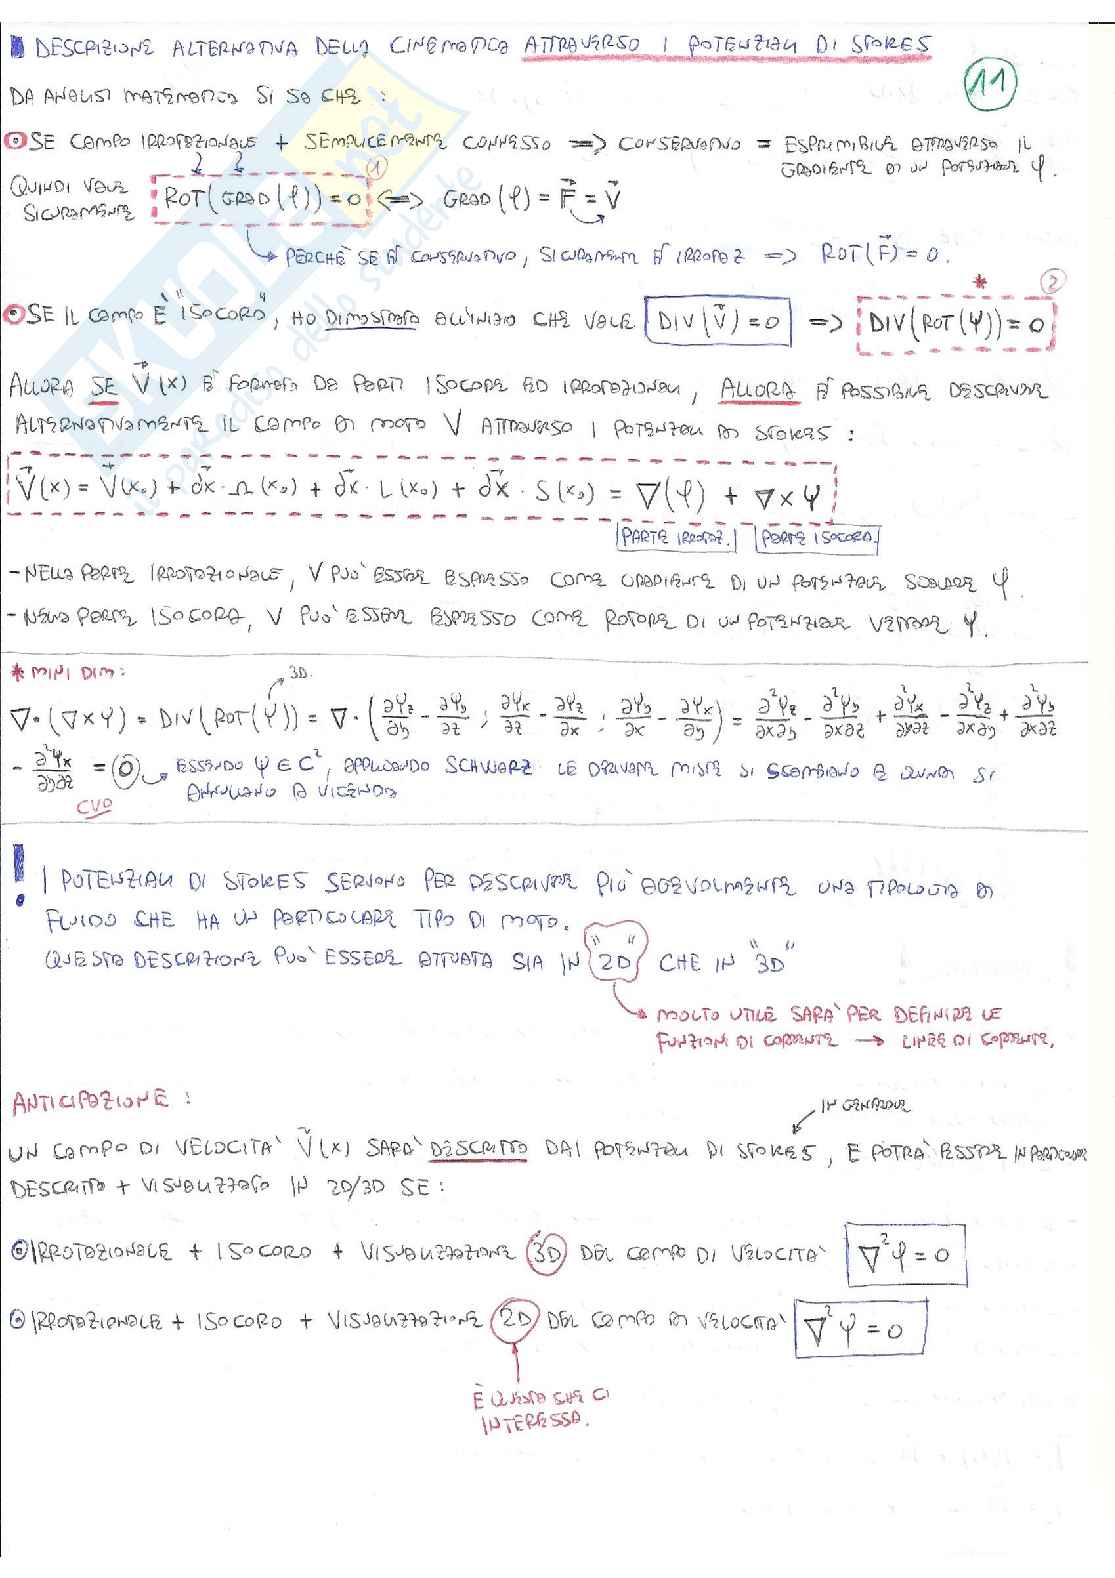 DESCRIZIONE ALTERNATIVA DELLA CINEMATICA ATTRAVERSO I POTENZIALI DI STOKES
11
DA ANALISI MATEMATICA SI SA CHE :
SE CAMPO IRROTAZIONALE + SEMPLICEMENTE CONNESSO => CONSERVATIVO = ESPRIMIBILE ATTRAVERSO IL
GRADIENTE DI UN POTENZIALE φ.
QUINDI VALE
SICURAMENTE
ROT(GRAD(φ))=0 <=> GRAD(φ) = F⃗ = V⃗
1
PERCHÈ SE È CONSERVATIVO, SICURAMENTE È IRROTAZ => ROT(F⃗)=0.
SE IL CAMPO È "ISOCORO", HO DIMOSTRATO ALL'INIZIO CHE VALE DIV(V⃗)=0 => DIV(ROT(ψ))=0
* 2
ALLORA SE V⃗(x) È FORMATO DA PARTI ISOCORE ED IRROTAZIONALI, ALLORA È POSSIBILE DESCRIVERE
ALTERNATIVAMENTE IL CAMPO DI MOTO V ATTRAVERSO I POTENZIALI DI STOKES :
V⃗(x) = V⃗(x₀) + d⃗x · Ω(x₀) + d⃗x · L(x₀) + d⃗x · S(x₀) = ∇(φ) + ∇×ψ
PARTE IRROTAZ. PARTE ISOCORA.
- NELLA PARTE IRROTAZIONALE, V PUÒ ESSER ESPRESSO COME GRADIENTE DI UN POTENZIALE SCALARE φ.
- NELLA PARTE ISOCORA, V PUÒ ESSER ESPRESSO COME ROTORE DI UN POTENZIALE VETTORE ψ.
* MINI DIM:
3D.
∇·(∇×ψ) = DIV(ROT(ψ)) = ∇·(∂ψz/∂y - ∂ψy/∂z ; ∂ψx/∂z - ∂ψz/∂x ; ∂ψy/∂x - ∂ψx/∂y) = ∂²ψz/∂x∂y - ∂²ψy/∂x∂z + ∂²ψx/∂y∂z - ∂²ψz/∂x∂y + ∂²ψy/∂x∂z
- ∂²ψx/∂y∂z = 0 ESSENDO ψ ∈ C², APPLICANDO SCHWARZ LE DERIVATE MISTE SI SCAMBIANO E QUINDI SI
ANNULLANO A VICENDA
CVD
! I POTENZIALI DI STOKES SERVONO PER DESCRIVERE PIÙ AGEVOLMENTE UNA TIPOLOGIA DI
FLUIDO CHE HA UN PARTICOLARE TIPO DI MOTO.
QUESTA DESCRIZIONE PUÒ ESSERE ATTUATA SIA IN "2D" CHE IN "3D"
MOLTO UTILE SARÀ PER DEFINIRE LE
FUNZIONI DI CORRENTE → LINEE DI CORRENTE.
ANTICIPAZIONE :
IN GENERALE
UN CAMPO DI VELOCITÀ V⃗(x) SARÀ DESCRITTO DAI POTENZIALI DI STOKES, E POTRÀ ESSERE IN PARTICOLARE
DESCRITTO + VISUALIZZATO IN 2D/3D SE :
IRROTAZIONALE + ISOCORO + VISUALIZZAZIONE 3D DEL CAMPO DI VELOCITÀ ∇²φ = 0
IRROTAZIONALE + ISOCORO + VISUALIZZAZIONE 2D DEL CAMPO DI VELOCITÀ ∇²ψ = 0
È QUESTA CHE CI
INTERESSA.